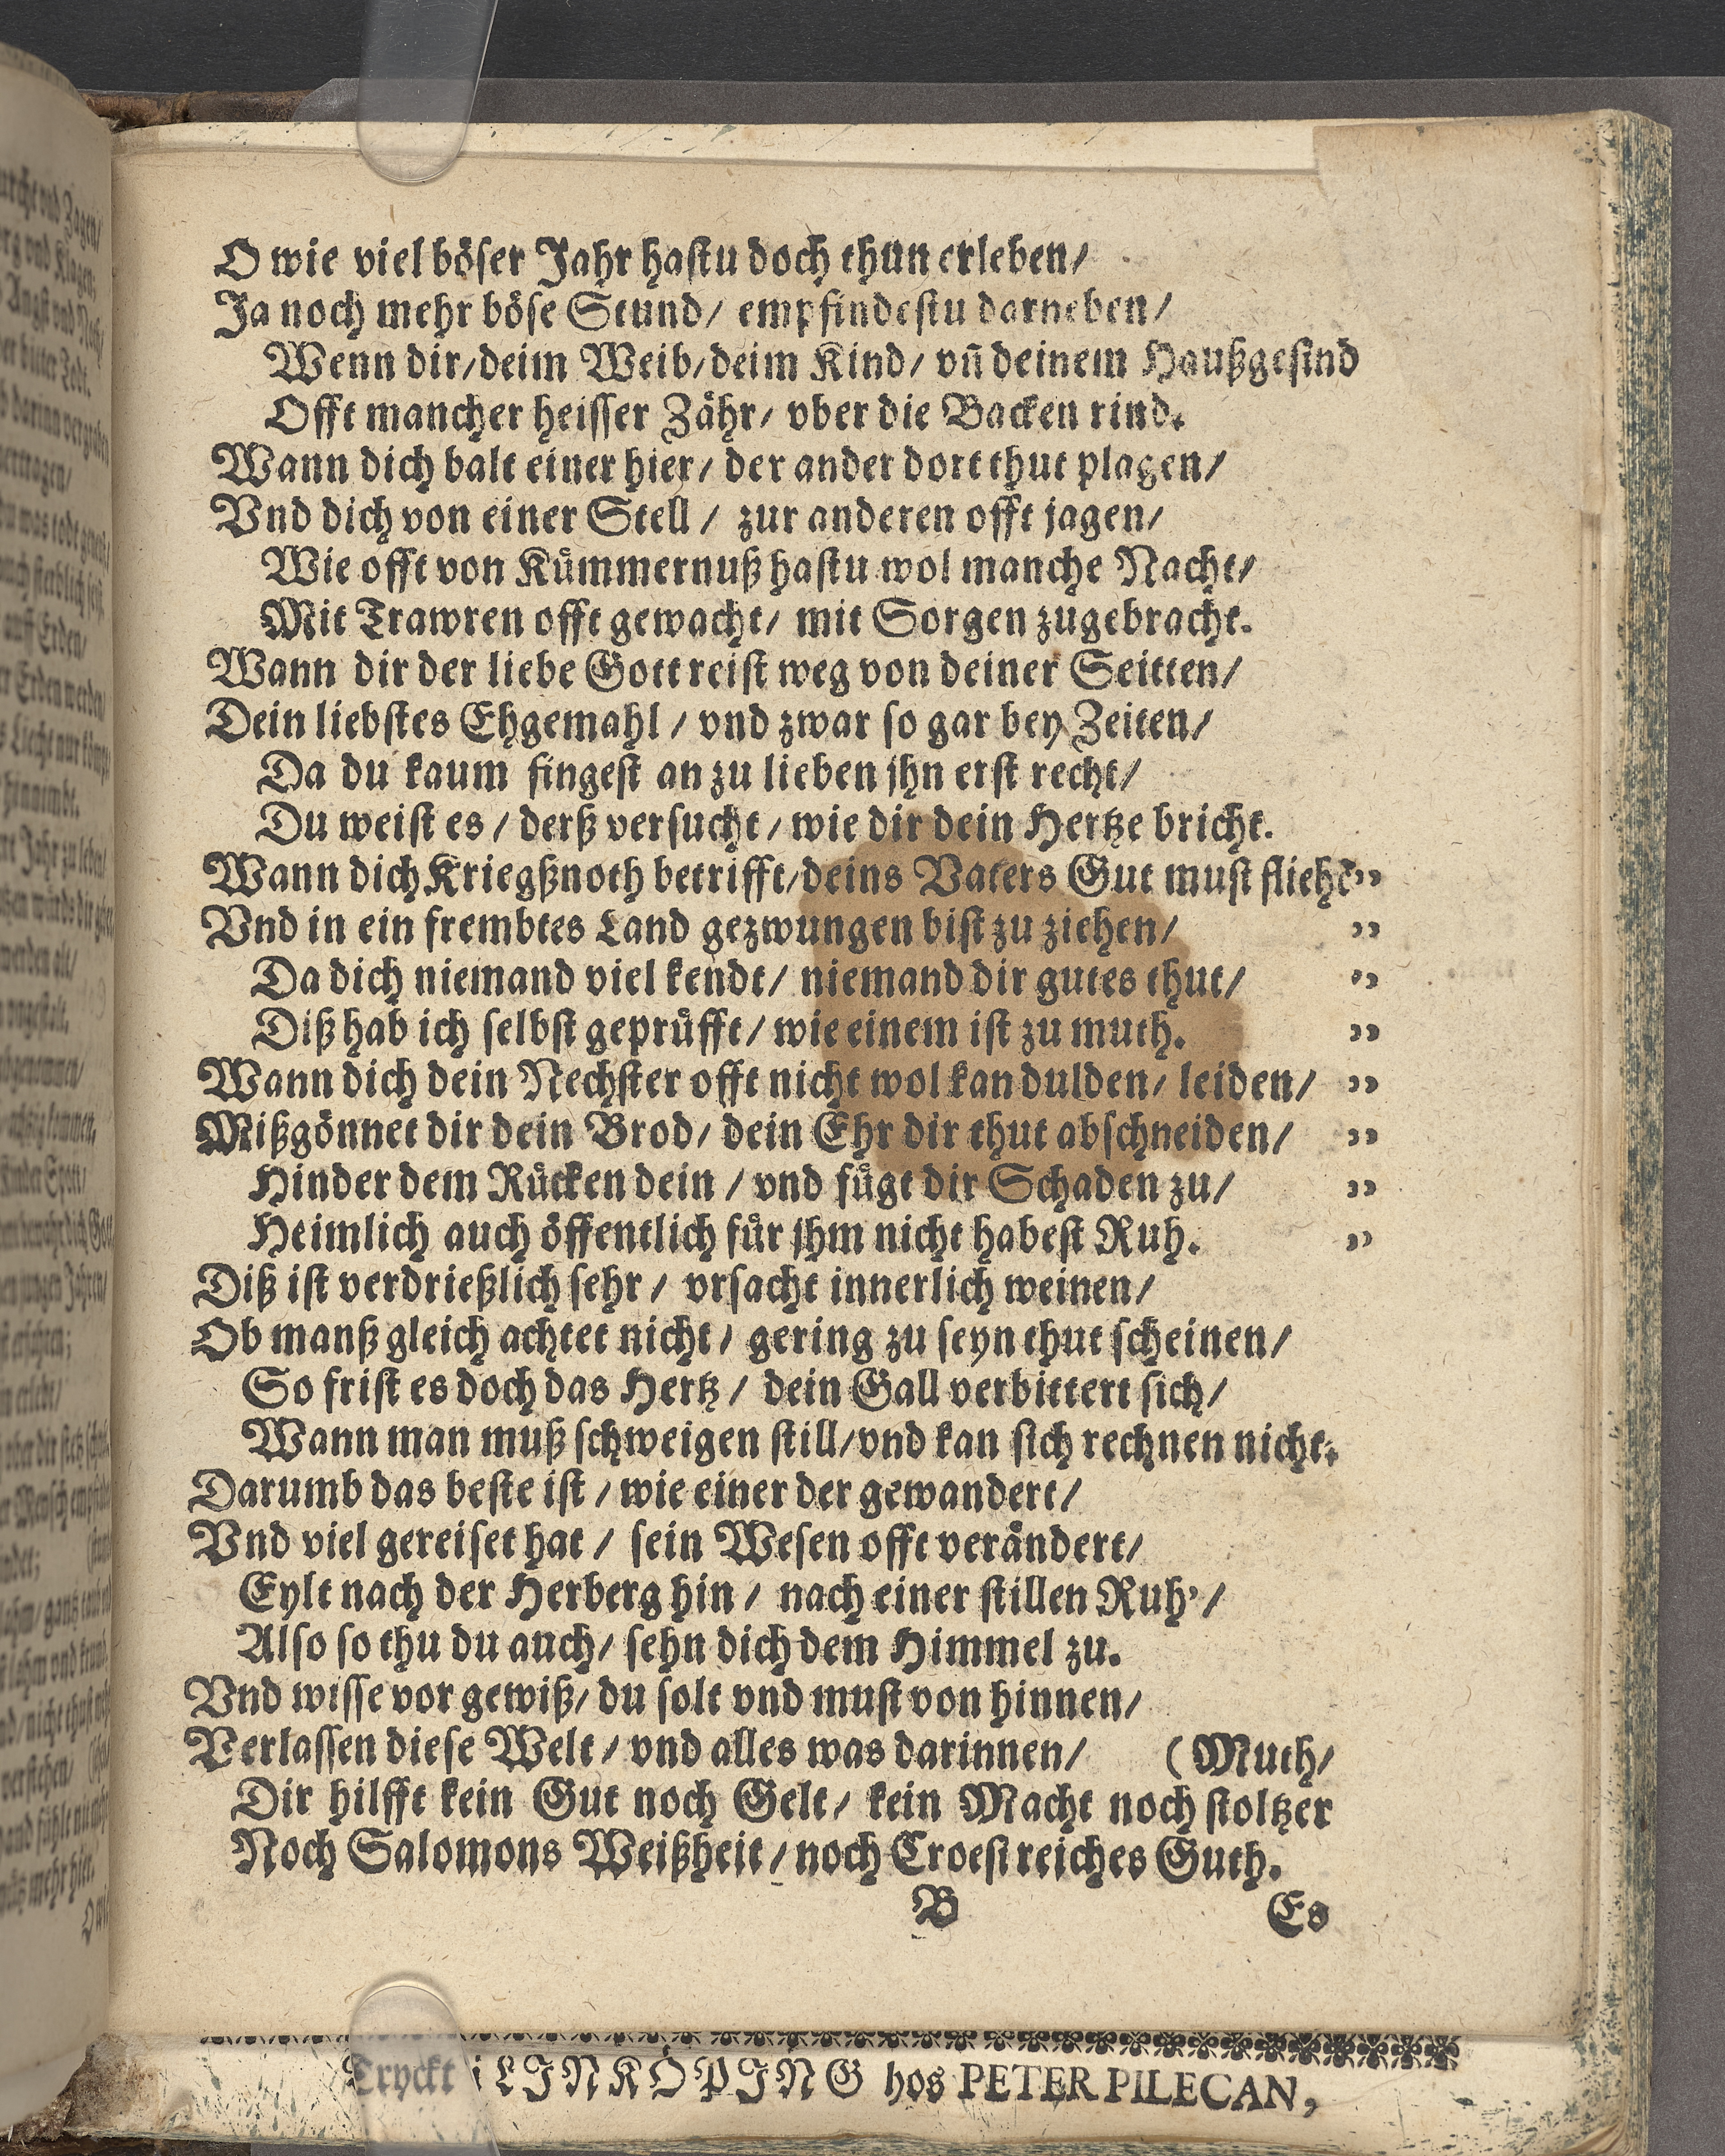 O wie viel böser Jahr hastu doch thun erleben/
Ja noch mehr böse Stund/ empfindestu darneben/
Wenn dir/deim Weib/deim Kind/ vn̄ deinem Haußgesind
Offt mancher heisser Zähr/ vber die Backen rind.
Wann dich balt einer hier/ der ander dort thut plagen/
Vnd dich von einer Stell / zur anderen offt jagen/
Wie offt von Kümmernuß hastu wol manche Nacht/
Mit Trawren offt gewacht/ mit Sorgen zugebracht.
Wann dir der liebe Gott reist weg von deiner Seitten/
Dein liebstes Ehgemahl / vnd zwar so gar bey Zeiten/
Da du kaum fingest an zu lieben jhn erst recht/
Du weist es / derß versucht / wie dir dein Hertze bricht.
Wann dich Kriegßnoth betrifft/deins Vaters Gut must fliehē ”
Vnd in ein frembtes Land gezwungen bist zu ziehen/ ”
Da dich niemand viel kendt/ niemand dir gutes thut/ ”
Diß hab ich selbst geprüfft/ wie einem ist zu muth. ”
Wann dich dein Nechster offt nicht wol kan dulden/ leiden/ ”
Mißgönnet dir dein Brod/ dein Ehr dir thut abschneiden/ ”
Hinder dem Rücken dein / vnd fügt dir Schaden zu/ ”
Heimlich auch öffentlich für jhm nicht habest Ruh. ”
Diß ist verdrießlich sehr / vrsacht innerlich weinen/
Ob manß gleich achtet nicht / gering zu seyn thut scheinen/
So frist es doch das Hertz / dein Gall verbittert sich/
Wann man muß schweigen still/vnd kan sich rechnen nicht.
Darumb das beste ist / wie einer der gewandert/
Vnd viel gereiset hat / sein Wesen offt verändert/
Eylt nach der Herberg hin / nach einer stillen Ruh’/
Also so thu du auch/ sehn dich dem Himmel zu.
Vnd wisse vor gewiß/ du solt vnd must von hinnen/
Verlassen diese Welt / vnd alles was darinnen/ (Muth/
Dir hilfft kein Gut noch Gelt/ kein Macht noch stoltzer
Noch Salomons Weißheit / noch Croesi reiches Guth.
B Es
Tryckt i LINKÖPING hos PETER PILECAN,